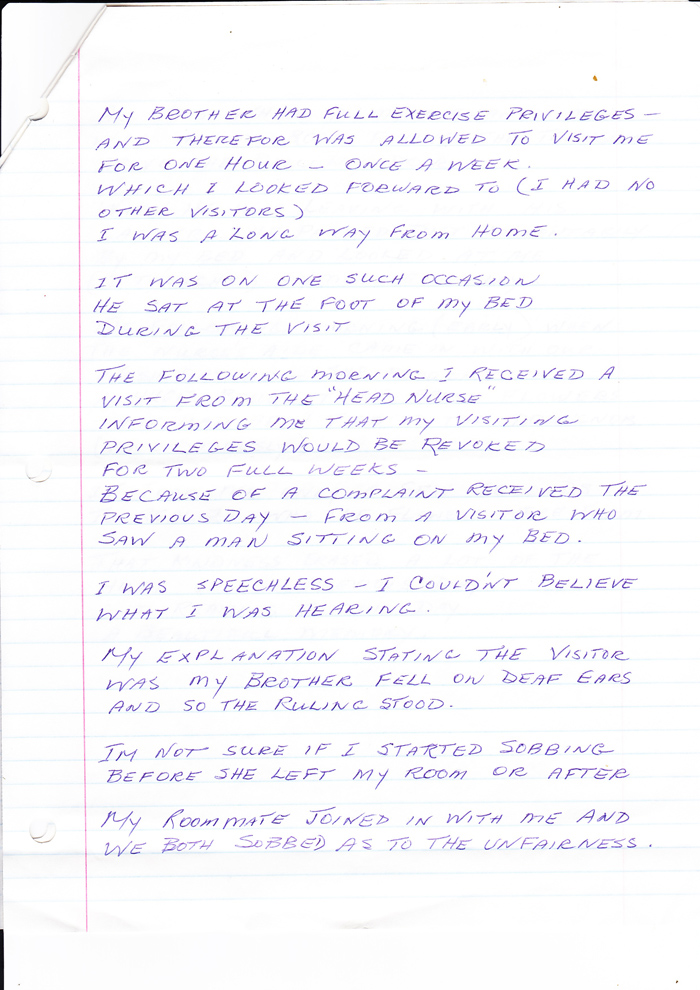 MY BROTHER HAD FULL EXERCISE PRIVILEGES –
AND THEREFOR WAS ALLOWED TO VISIT ME
FOR ONE HOUR – ONCE A WEEK.
WHICH I LOOKED FORWARD TO (I HAD NO
OTHER VISITORS)
I WAS A LONG WAY FROM HOME.

IT WAS ON ONE SUCH OCCASION
HE SAT AT THE FOOT OF MY BED
DURING THE VISIT

THE FOLLOWING MORNING I RECEIVED A
VISIT FROM THE "HEAD NURSE"
INFORMING ME THAT MY VISITING
PRIVILEGES WOULD BE REVOKED
FOR TWO FULL WEEKS –
BECAUSE OF A COMPLAINT RECEIVED THE
PREVIOUS DAY – FROM A VISITOR WHO
SAW A MAN SITTING ON MY BED.

I WAS SPEECHLESS – I COULDN'T BELIEVE
WHAT I WAS HEARING.

MY EXPLANATION STATING THE VISITOR
WAS MY BROTHER FELL ON DEAF EARS
AND SO THE RULING STOOD.

IM NOT SURE IF I STARTED SOBBING
BEFORE SHE LEFT MY ROOM OR AFTER

MY ROOMMATE JOINED IN WITH ME AND
WE BOTH SOBBED AS TO THE UNFAIRNESS.